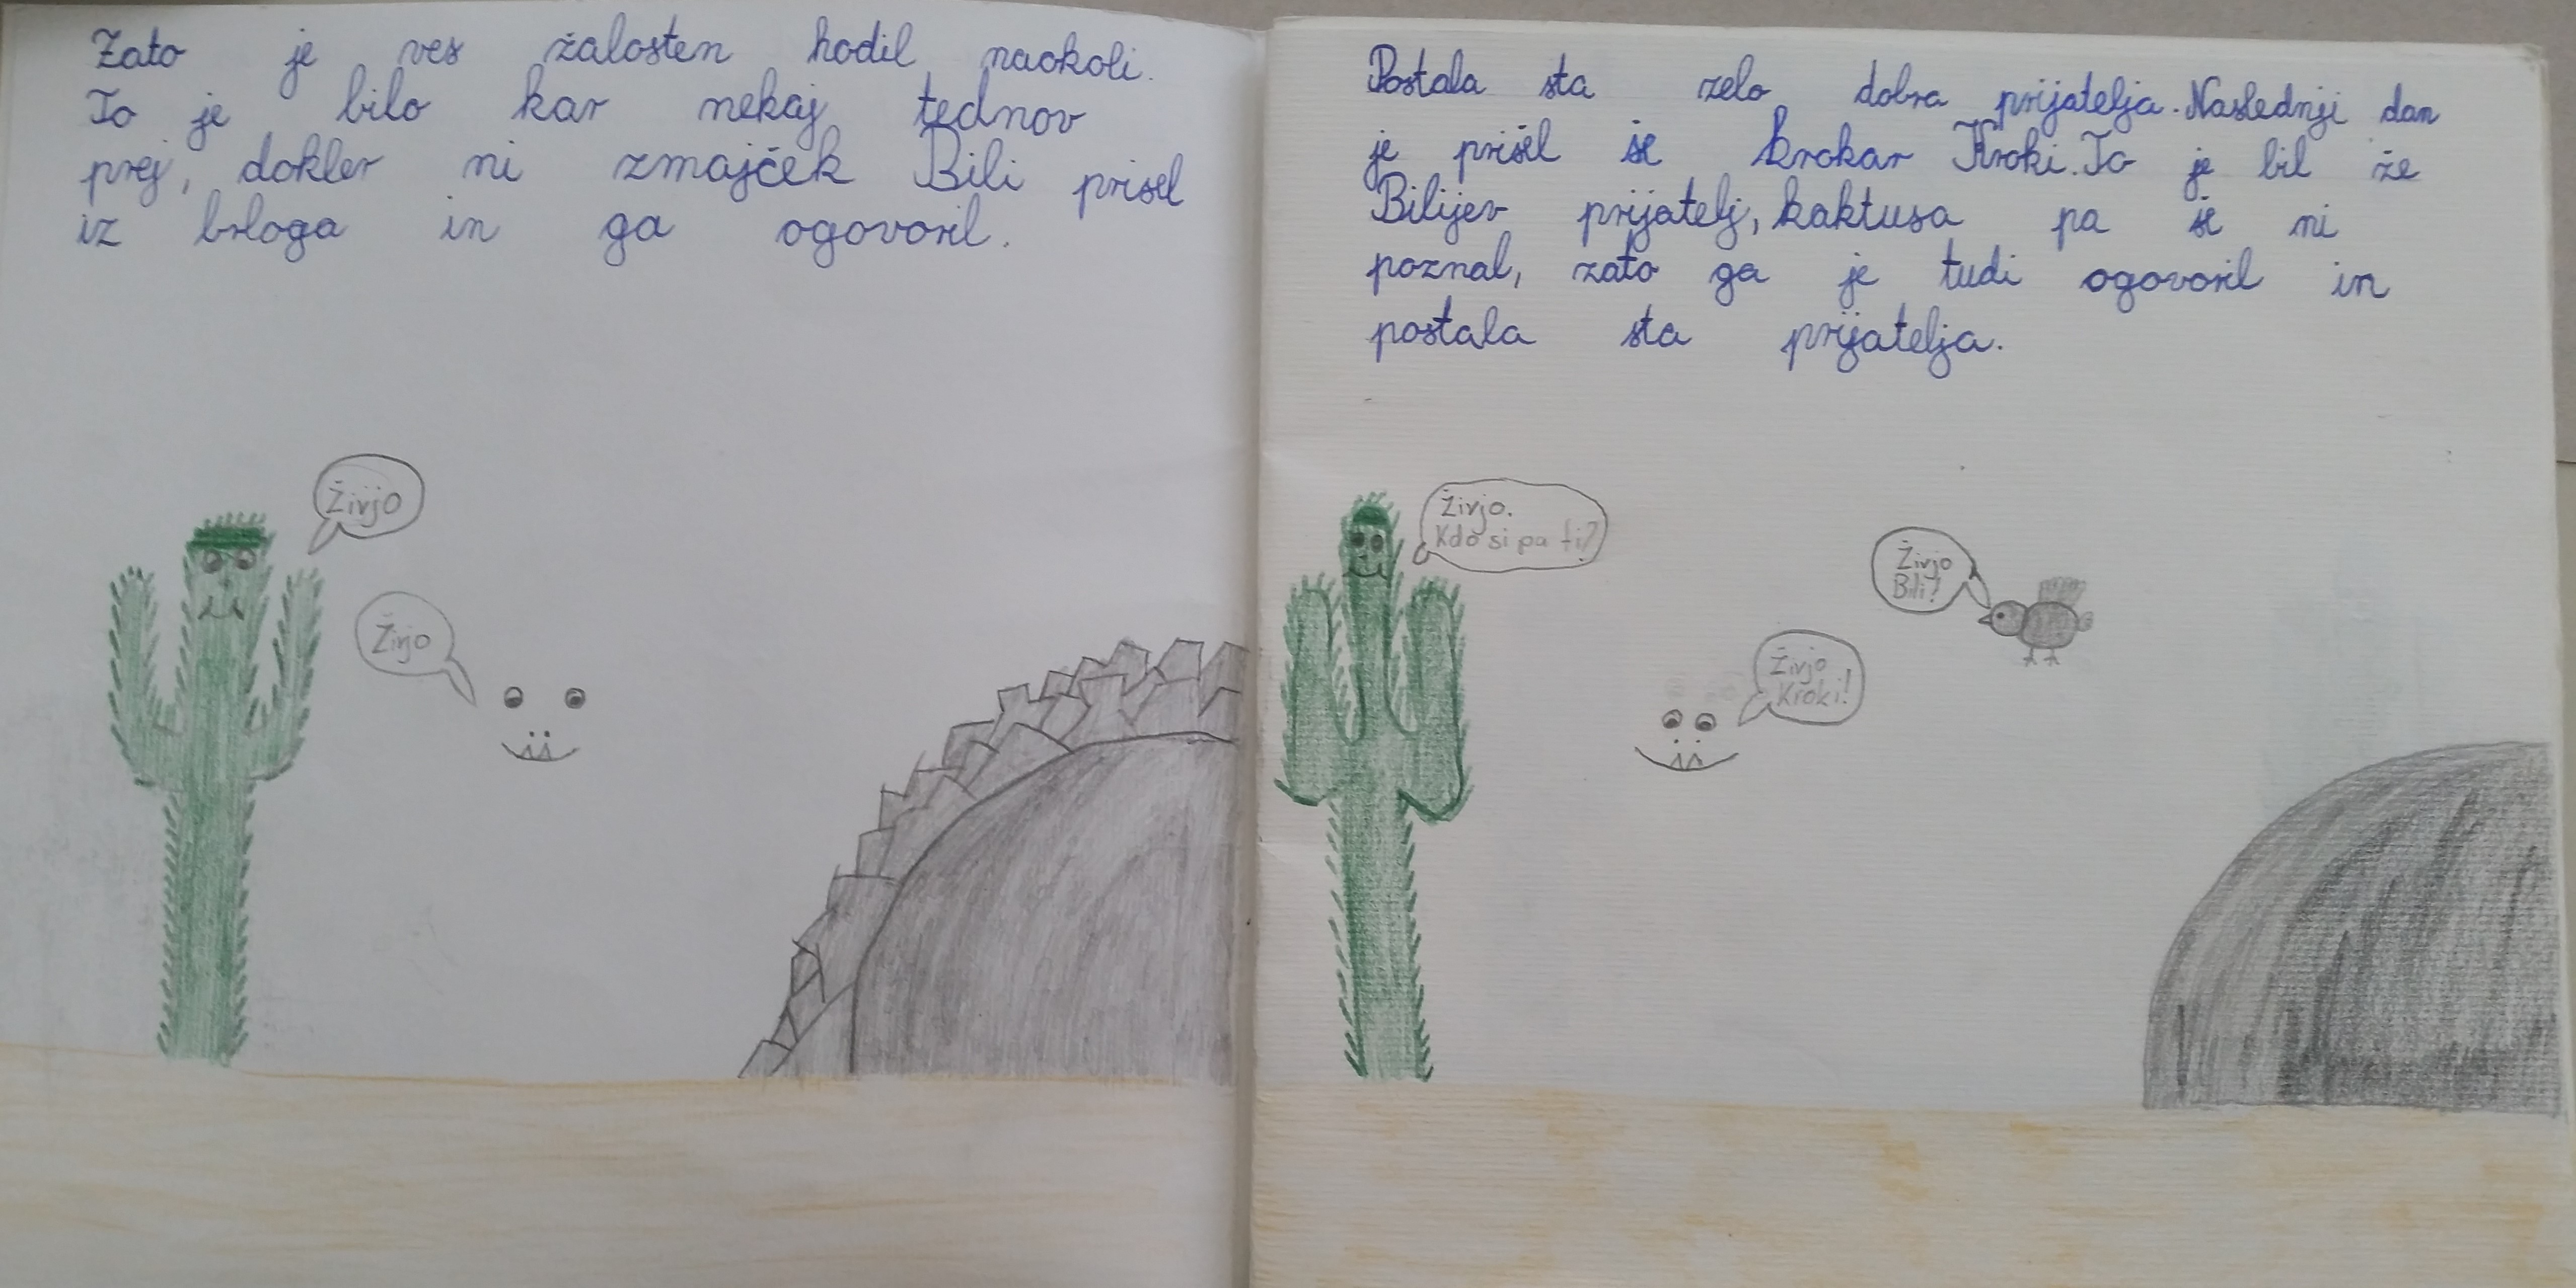 Zato je ves žalosten hodil naokoli.
To je bilo kar nekaj tednov
prej, dokler ni zmajček Bili prisel
iz brloga in ga ogovoril.
Živjo
Živjo
Postala sta zelo dobra prijatelja. Naslednji dan
je prišel še krokar Kroki. To je bil že
Bilijev prijatelj, kaktusa pa še ni
poznal, zato ga je tudi ogovoril in
postala sta prijatelja.
Živjo.
Kdo si pa ti?
Živjo
Bili!
Živjo
Kroki!